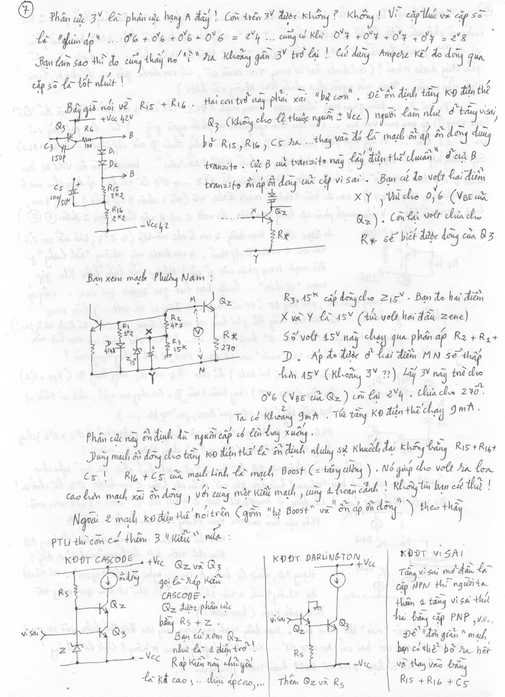 7
Phân cực 3V là phân cực hạng A đấy! Còn trên 3V được không? Không! Vì cấp thúc và cấp số
là "ghim áp" ... 0V6 + 0V6 + 0V6 + 0V6 = 2V4 ... cũng có khi 0V7 + 0V7 + 0V7 + 0V7 = 2V8
Bạn làm sao thì đo cũng thấy nó "ì" ra khoảng gần 3V trở lại! Cứ dùng Ampere kế đo dòng qua
cấp số là tốt nhứt!
Bây giờ nói về R15 + R16. Hai con trở này phải xài "bự con". Để ổn định tầng KĐ điện thế
Q3 (không cho lệ thuộc nguồn ± Vcc) người làm như ở tầng vi sai,
bỏ R15, R16, C5 ra ... thay vào đó là mạch ổn áp ổn dòng dùng
tranzito. Cực B của tranzito này lấy "điện thế chuẩn" ở cực B
tranzito ổn áp ổn dòng của cấp vi sai. Bạn cứ đo volt hai điểm
XY, trừ cho 0,6 (VBE của
QZ). Còn lại volt chia cho
R* sẽ biết được dòng của Q3
+Vcc 42V
Q3
R6
C3
150P
B
D1
D2
B
C5
R15
2K2
R16
2K2
-Vcc 42
X
QZ
R*
Y
Bạn xem mạch Phương Nam:
M
QZ
R1
R2
4K2
X
V
R*
270
D
Z15V
R3
15K
Y
N
R3, 15K cấp dòng cho Z15V. Bạn đo hai điểm
X và Y là 15V (tức volt hai đầu zene)
Số volt 15V này chạy qua phân áp R2 + R1 +
D. Áp đo được ở hai điểm MN sẽ thấp
hơn 15V (khoảng 3V ??) Lấy 3V này trừ cho
0V6 (VBE của QZ) còn lại 2V4. Chia cho 270Ω
Ta có khoảng 9mA. Thì tầng KĐ điện thế chạy 9mA.
Phân cực này ổn định dù nguồn cấp có lên hay xuống.
Dùng mạch ổn dòng cho tầng KĐ điện thế là ổn định nhưng sự khuếch đại không bằng R15 + R16 +
C5! R16 + C5 của mạch tính là mạch Boost (= tăng cường). Nó giúp cho volt ra loa
cao hơn mạch xài ổn dòng, với cùng một kiểu mạch, cùng 1 hoàn cảnh! Không tin bạn cứ thử!
Ngoài 2 mạch KĐ điện thế nói trên (gồm "tự Boost" và "ổn áp ổn dòng") theo thầy
PTLI thì còn có thêm 3 "kiểu" nữa:
KĐĐT CASCODE
+Vcc
ổn dòng
RS
QZ
vi sai
Q3
Z
-Vcc
QZ và Q3
gọi là ráp kiểu
CASCODE.
QZ được phân cực
bằng RS + Z.
Bạn cứ xem QZ
như là 1 điện trở!
Ráp kiểu này chủ yếu
là KĐ cao, ... chịu áp cao, ...
KĐĐT DARLINGTON
+Vcc
vi sai
QZ
Q3
RS
-Vcc
Thêm QZ và RS
KĐĐT VI SAI
Tầng vi sai mở đầu là
cặp NPN thì người ta
thêm 1 tầng vi sai thứ
hai bằng cặp PNP, v.v..
Để "đơn giản" mạch,
bạn có thể bỏ ra hết
và thay vào bằng
R15 + R16 + C5